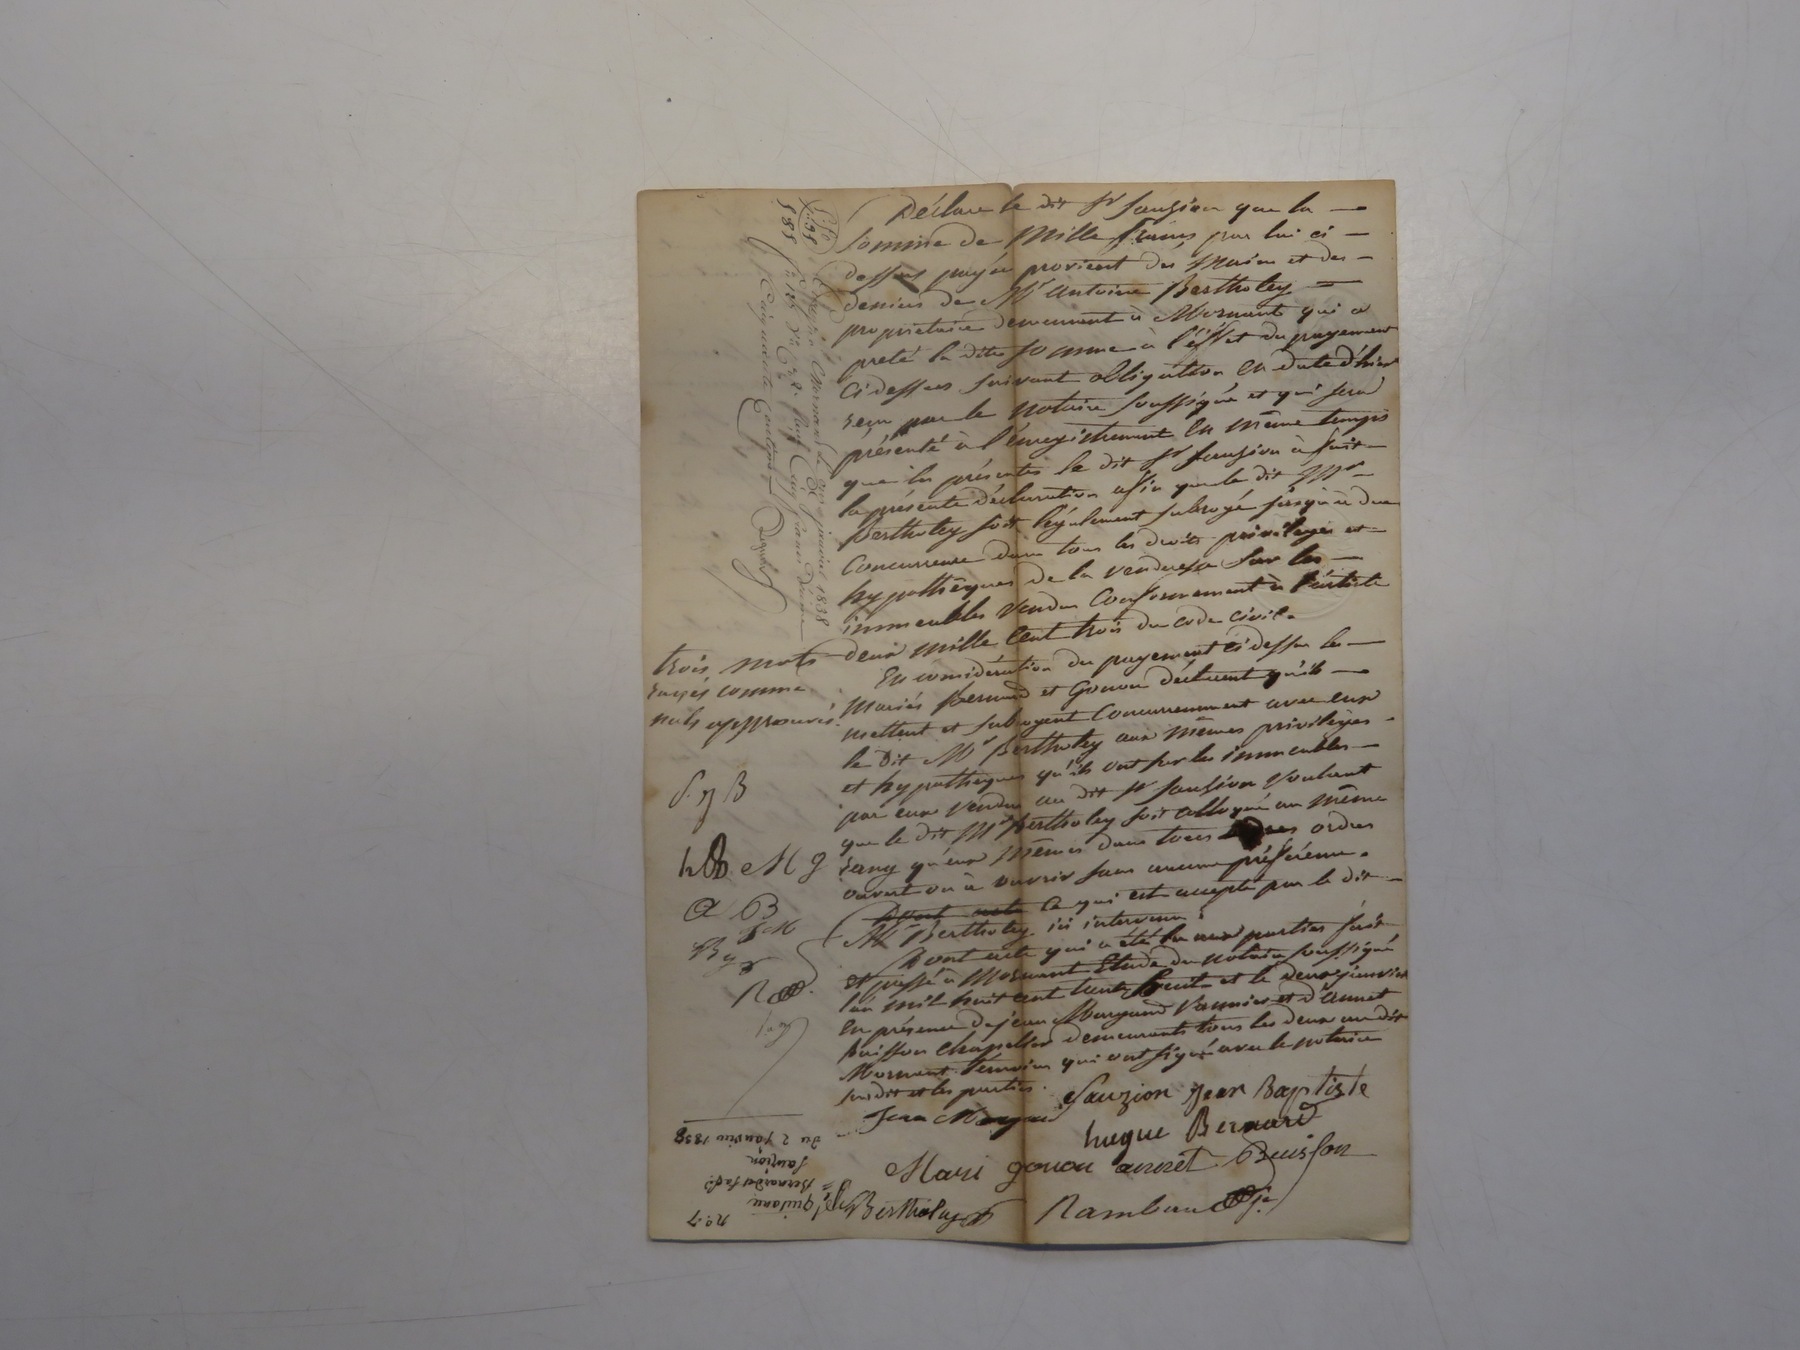 Déclare le dit Sr Sauzion que la
somme de Mille francs par lui ci
dessus payée provient des mains et des
deniers de Mr Antoine Bertholey
propriétaire demeurant à Mornant qui a
preté la dite somme à l'effet du payement
ci dessus suivant obligation en date d'hier
reçu par le notaire soussigné et qui sera
présenté à l'énregistrement en même temps
que les présentes le dit Sr Sauzion à fait
la présente déclaration afin que le dit Mr
Bertholey soit légalement subrogé jusqu'à due
concurrence dans tous les droits privilèges et
hypothêques de la venderesse sur les
immeubles vendus conformément à l'article
deux mille cent trois du code civil.
En considération du payement ci dessus les
mariés Bernard et Gonon déclarent qu'ils
mettent et subrogent concurremment avec eux
le dit Mr Bertholey aux mêmes privilèges
et hypothèques qu'ils ont sur les immeubles
par eux vendus au dit Sr Sauzion voulant
que le dit Mr Bertholey soit alloqué au même
rang qu'eux mêmes dans tous ordres
ouvert ou à ouvrir sans aucune préférence.
Dont acte ce qui est accepté par le dit
Mr Bertholey ici intervenu.
Dont acte qui a été lu aux parties fait
et passé à Mornant Etude du notaire soussigné
l'an mil huit cent trente huit et le deux janvier
En présence de jean Margand Vannier et d'annet
Buisson chapellier demeurants tous les deux au dit
Mornant témoins qui ont signé avec le notaire
susdit et les parties.
Sauzion Jean Baptizte
Jean Margand
hugue Bernard
Marie gonon annet Buisson
Bertholey
Rambaud
trois mots
rayés comme
nuls approuvés.
S. J B
h B M g
a B
J M
By
R
Enregistré à Mornant le onze janvier 1838
Reçu cinq francs
cinquante centimes
No 7
quitance
Bernard et fe à
Sauzion
du 2 janvier 1838